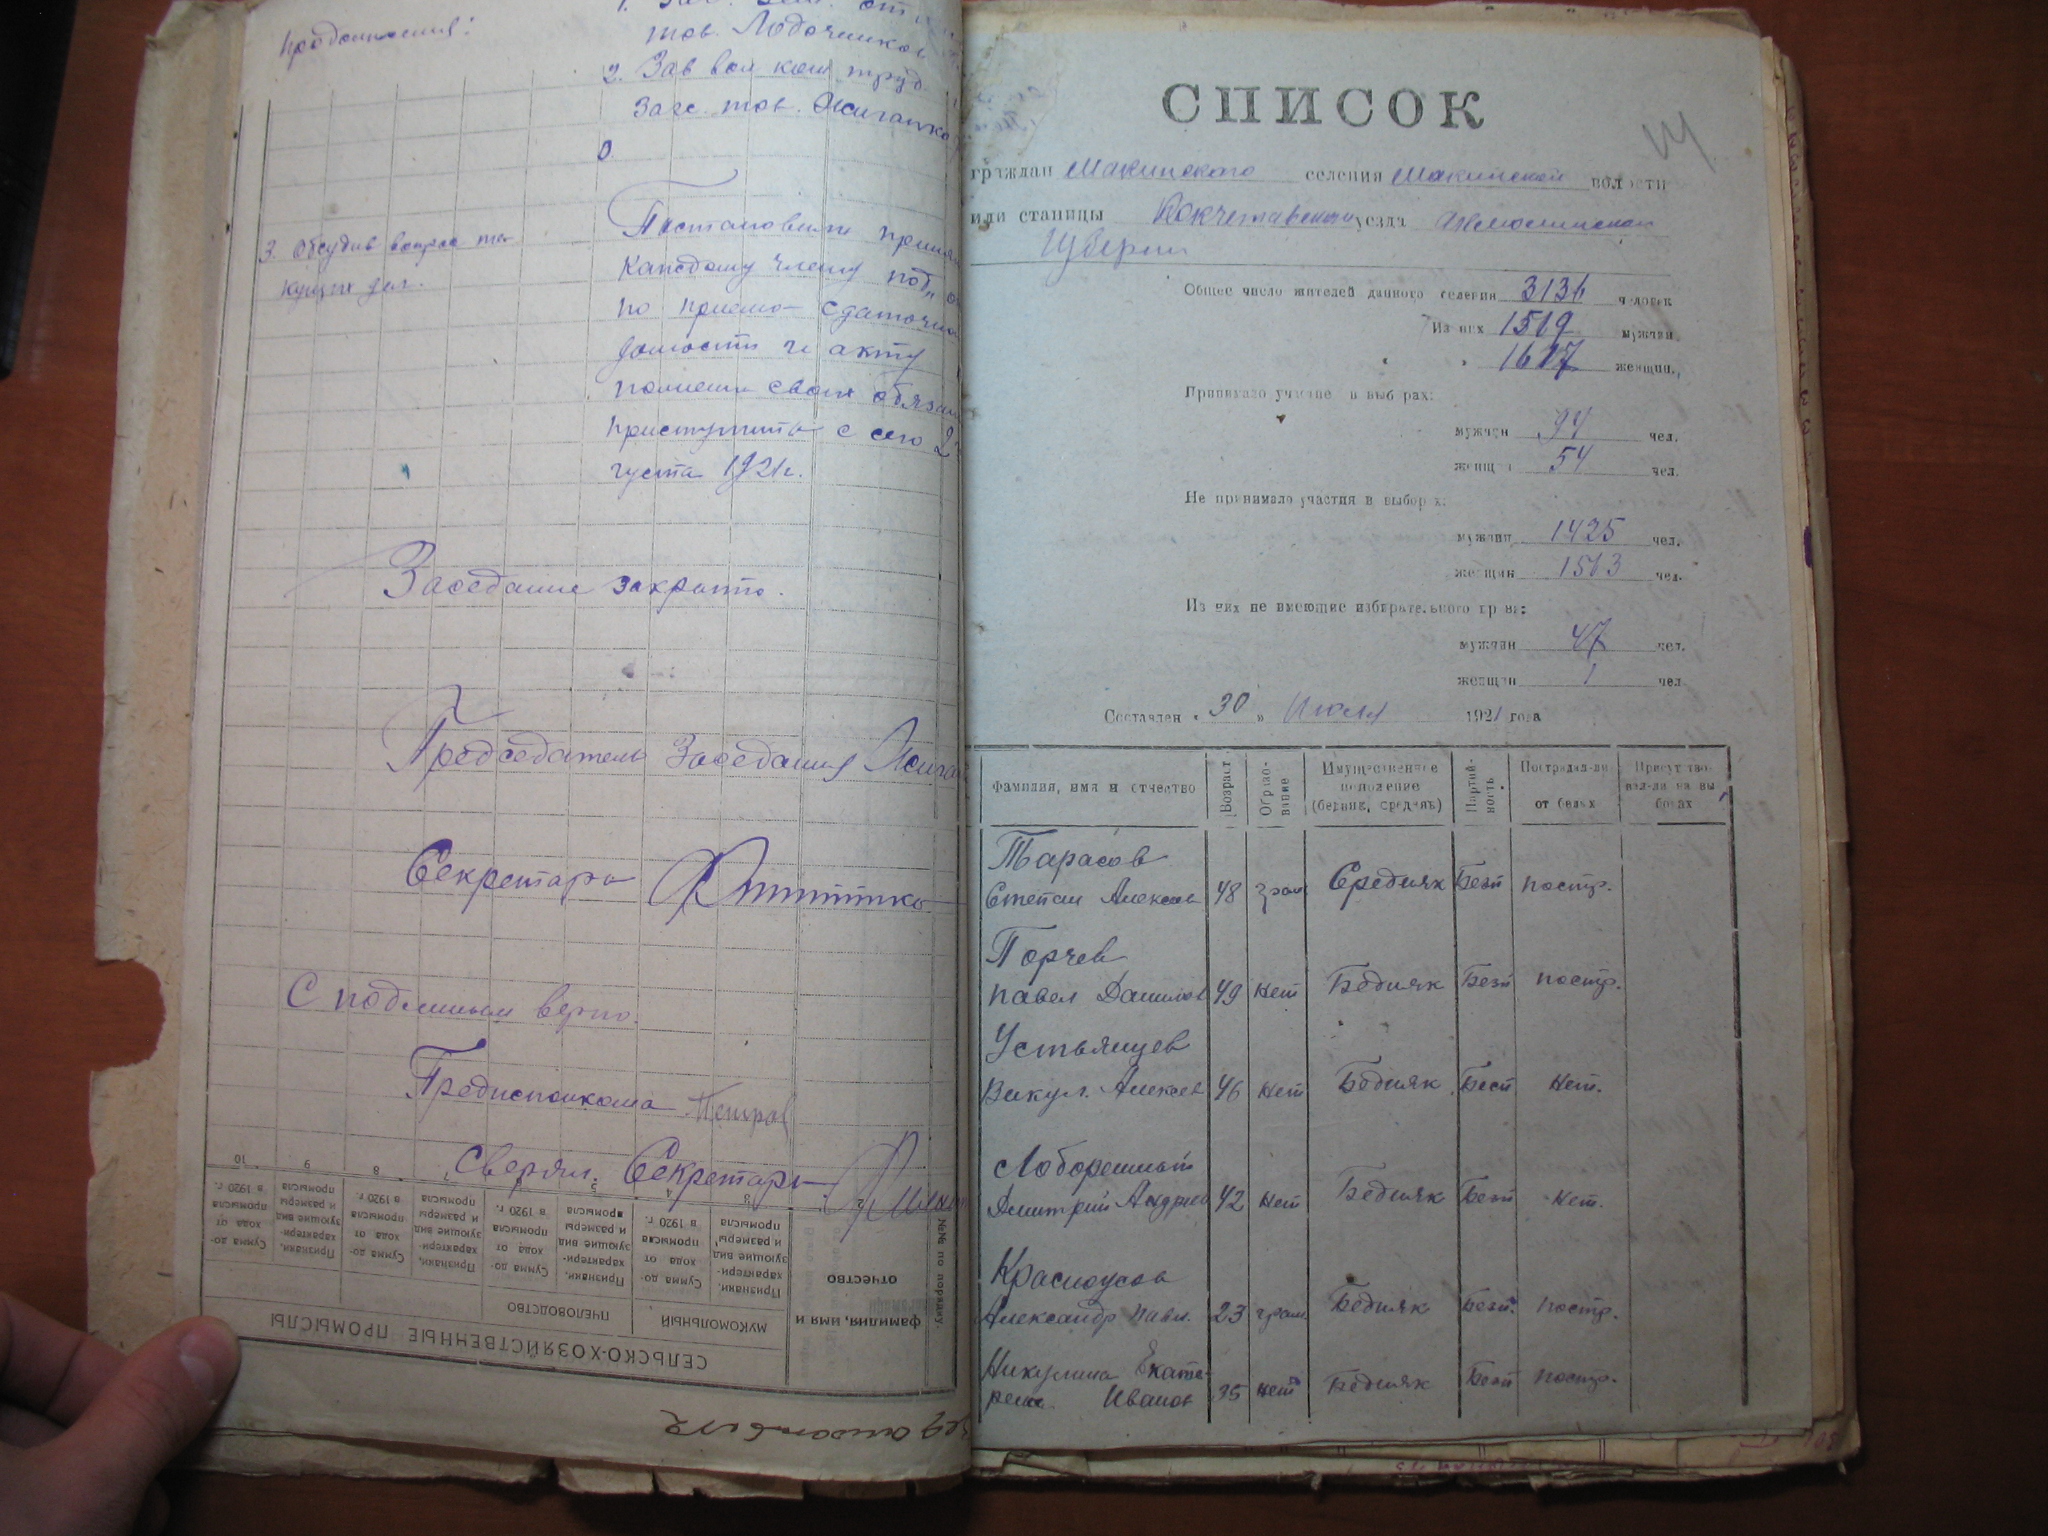 тов. Лодочников
2. Зав вол ком труд
Загс. тов. Жиганко
3. Обсудив вопрос те-
кущих дел.
Постановили
каждому члену
по приемо-сдаточно
и акту
своих обязан
приступить с сего 2
густа 1921 г.
Заседание закрыто.
Председатель Заседания
Секретарь
С подлинным верно.
Предисполкома Петров
Сверял. Секретарь
№№ по порядку.
фамилия, имя и отчество
СЕЛЬСКО-ХОЗЯЙСТВЕННЫЕ ПРОМЫСЛЫ
МУКОМОЛЬНЫЙ
ПЧЕЛОВОДСТВО
Признаки, характеризующие вид и размеры промысла
Сумма дохода от промысла в 1920 г.
Признаки, характеризующие вид и размеры промысла
Сумма дохода от промысла в 1920 г.
Признаки, характеризующие вид и размеры промысла
Сумма дохода от промысла в 1920 г.
Признаки, характеризующие вид и размеры промысла
Сумма дохода от промысла в 1920 г.
2 3 4 5 6 7 8 9 10
СПИСОК
граждан Макинского селения Макинской волости
или станицы Кокчетавского уезда Акмолинской
Губернии
Общее число жителей данного селения 3136 человек
Из них 1519 мужчин.
" " 1617 женщин.
Принимало участие в выборах:
мужчин 94 чел.
женщин 54 чел.
Не принимало участия в выборах:
мужчин 1425 чел.
женщин 1563 чел.
Из них не имеющие избирательного права:
мужчин 47 чел.
женщин 1 чел.
Составлен "30" Июля 1921 года
Фамилия, имя и отчество
Возраст
Образование
Имущественное положение (бедняк, средняк)
Партийность
Пострадал-ли от белых
Присутствовал-ли на выборах
Тарасов
Степан Алексеев 48 грам Середняк Безп постр.
Порчев
Павел Данилов 49 нет Бедняк Безп постр.
Устьянцев
Викул. Алексеев 46 нет Бедняк Бесп Нет.
Лоборешный
Дмитрий Андреев 42 нет Бедняк Безп Нет.
Красноусов
Александр Павл. 23 грам Бедняк Безп. постр.
Никулина Екате-
рина Иванов 35 нет Бедняк Безп постр.